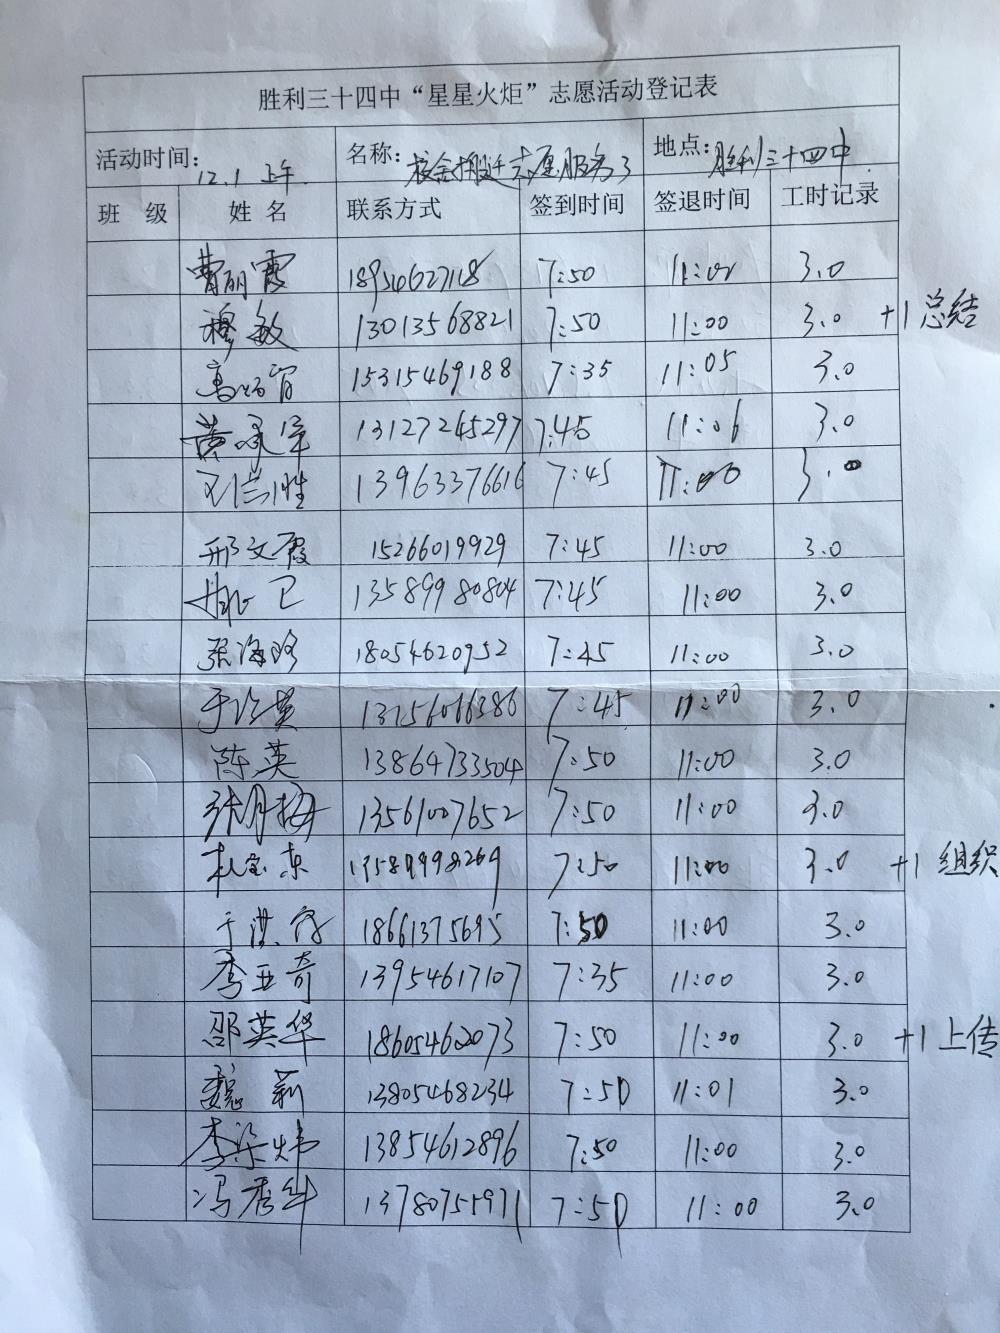 胜利三十四中“星星火炬”志愿活动登记表
活动时间：12.1 上午 名称：校舍搬迁志愿服务3 地点：胜利三十四中
班 级 姓 名 联系方式 签到时间 签退时间 工时记录
曹丽霞 18954627118 7:50 11:02 3.0
穆敏 13013568821 7:50 11:00 3.0 +1 总结
15315469188 7:35 11:05 3.0
13127245297 7:45 11:06 3.0
13963376616 7:45 11:00 3.0
邢文霞 15266019929 7:45 11:00 3.0
13589980804 7:45 11:00 3.0
张海路 18054620952 7:45 11:00 3.0
7:45 11:00 3.0
陈英 13864733504 7:50 11:00 3.0
张月梅 13561007652 7:50 11:00 3.0
杜宝东 13589998269 7:50 11:00 3.0 +1 组织
18661375695 7:50 11:00 3.0
李亚奇 13954617107 7:35 11:00 3.0
邵英华 18605462073 7:50 11:00 3.0 +1 上传
魏莉 13805468234 7:50 11:01 3.0
13854612896 7:50 11:00 3.0
冯秀华 13780755971 7:50 11:00 3.0